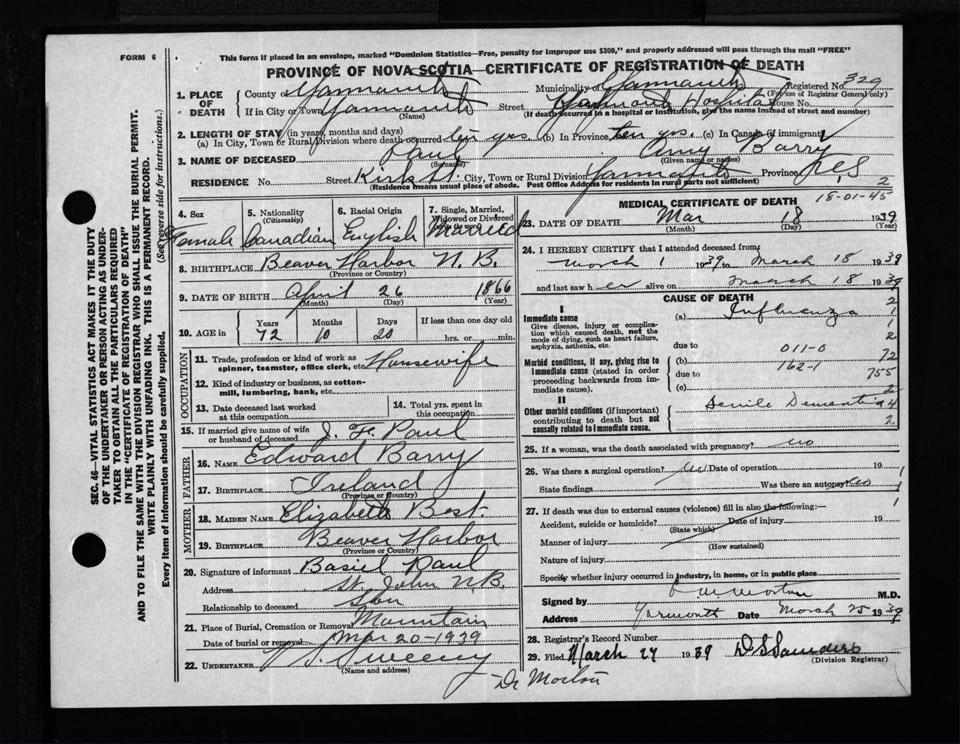 FORM 6
This form if placed in an envelope, marked "Dominion Statistics—Free, penalty for improper use $300," and properly addressed will pass through the mail "FREE"
PROVINCE OF NOVA SCOTIA—CERTIFICATE OF REGISTRATION OF DEATH
1. PLACE OF DEATH County of Yarmouth Municipality of Yarmouth Registered No. 329
(For use of Registrar General only)
If in City or Town Yarmouth Street Yarmouth Hospital House No.
(Name) (If death occurred in a hospital or institution, give the name instead of street and number)
2. LENGTH OF STAY (in years, months and days)
(a) In City, Town or Rural Division where death occurred ten yrs. (b) In Province ten yrs. (c) In Canada (if immigrant)
3. NAME OF DECEASED Paul Amy Barry
(Surname) (Given name or names)
RESIDENCE No. Street Kirk St. City, Town or Rural Division Yarmouth Province N.S
(Residence means usual place of abode. Post Office Address for residents in rural parts not sufficient)
2
18-01-45
4. Sex Female
5. Nationality (Citizenship) Canadian
6. Racial Origin English
7. Single, Married, Widowed or Divorced Married
8. BIRTHPLACE Beaver Harbor N.B.
(Province or Country)
9. DATE OF BIRTH April 26 1866
(Month) (Day) (Year)
10. AGE in Years Months Days If less than one day old
72 10 20 hrs. or min.
OCCUPATION
11. Trade, profession or kind of work as spinner, teamster, office clerk, etc. Housewife
12. Kind of industry or business, as cotton-mill, lumbering, bank, etc.
13. Date deceased last worked at this occupation
14. Total yrs. spent in this occupation
15. If married give name of wife or husband of deceased J. H. Paul
FATHER
16. NAME Edward Barry
17. BIRTHPLACE Ireland
(Province or Country)
MOTHER
18. MAIDEN NAME Elizabeth Best.
19. BIRTHPLACE Beaver Harbor
(Province or Country)
20. Signature of informant Basil Paul
Address St. John N.B.
Relationship to deceased Son
21. Place of Burial, Cremation or Removal Mountain
Date of burial or removal Mar 20-1939
22. UNDERTAKER Sweeny
(Name and address)
Dr Morton
MEDICAL CERTIFICATE OF DEATH
23. DATE OF DEATH Mar 18 1939
(Month) (Day) (Year)
24. I HEREBY CERTIFY that I attended deceased from
March 1 1939 to March 18 1939
and last saw her alive on March 18 1939
CAUSE OF DEATH
I
Immediate cause (a) Influenza
Give disease, injury or complication which caused death, not the mode of dying, such as heart failure, asphyxia, asthenia, etc.
due to 011-0
Morbid conditions, if any, giving rise to immediate cause (stated in order proceeding backwards from immediate cause).
(b) 162-1
due to
(c)
2
1
1
2
72
755
2
4
2
II
Other morbid conditions (if important) contributing to death but not causally related to immediate cause. Senile Dementia
25. If a woman, was the death associated with pregnancy? no
26. Was there a surgical operation? no Date of operation 19
State findings Was there an autopsy? no
1
1
27. If death was due to external causes (violence) fill in also the following:—
Accident, suicide or homicide? Date of injury 19
(State which)
Manner of injury
(How sustained)
Nature of injury
Specify whether injury occurred in industry, in home, or in public place
Signed by Morton M.D.
Address Yarmouth Date March 25 1939
28. Registrar's Record Number
29. Filed March 27 1939 D S Saunders
(Division Registrar)
SEC. 46—VITAL STATISTICS ACT MAKES IT THE DUTY
OF THE UNDERTAKER OR PERSON ACTING AS UNDER-
TAKER TO OBTAIN ALL THE PARTICULARS REQUIRED
IN THE "CERTIFICATE OF REGISTRATION OF DEATH"
AND TO FILE THE SAME WITH THE DIVISION REGISTRAR WHO SHALL ISSUE THE BURIAL PERMIT.
WRITE PLAINLY WITH UNFADING INK. THIS IS A PERMANENT RECORD.
Every item of information should be carefully supplied. (See reverse side for instructions.)